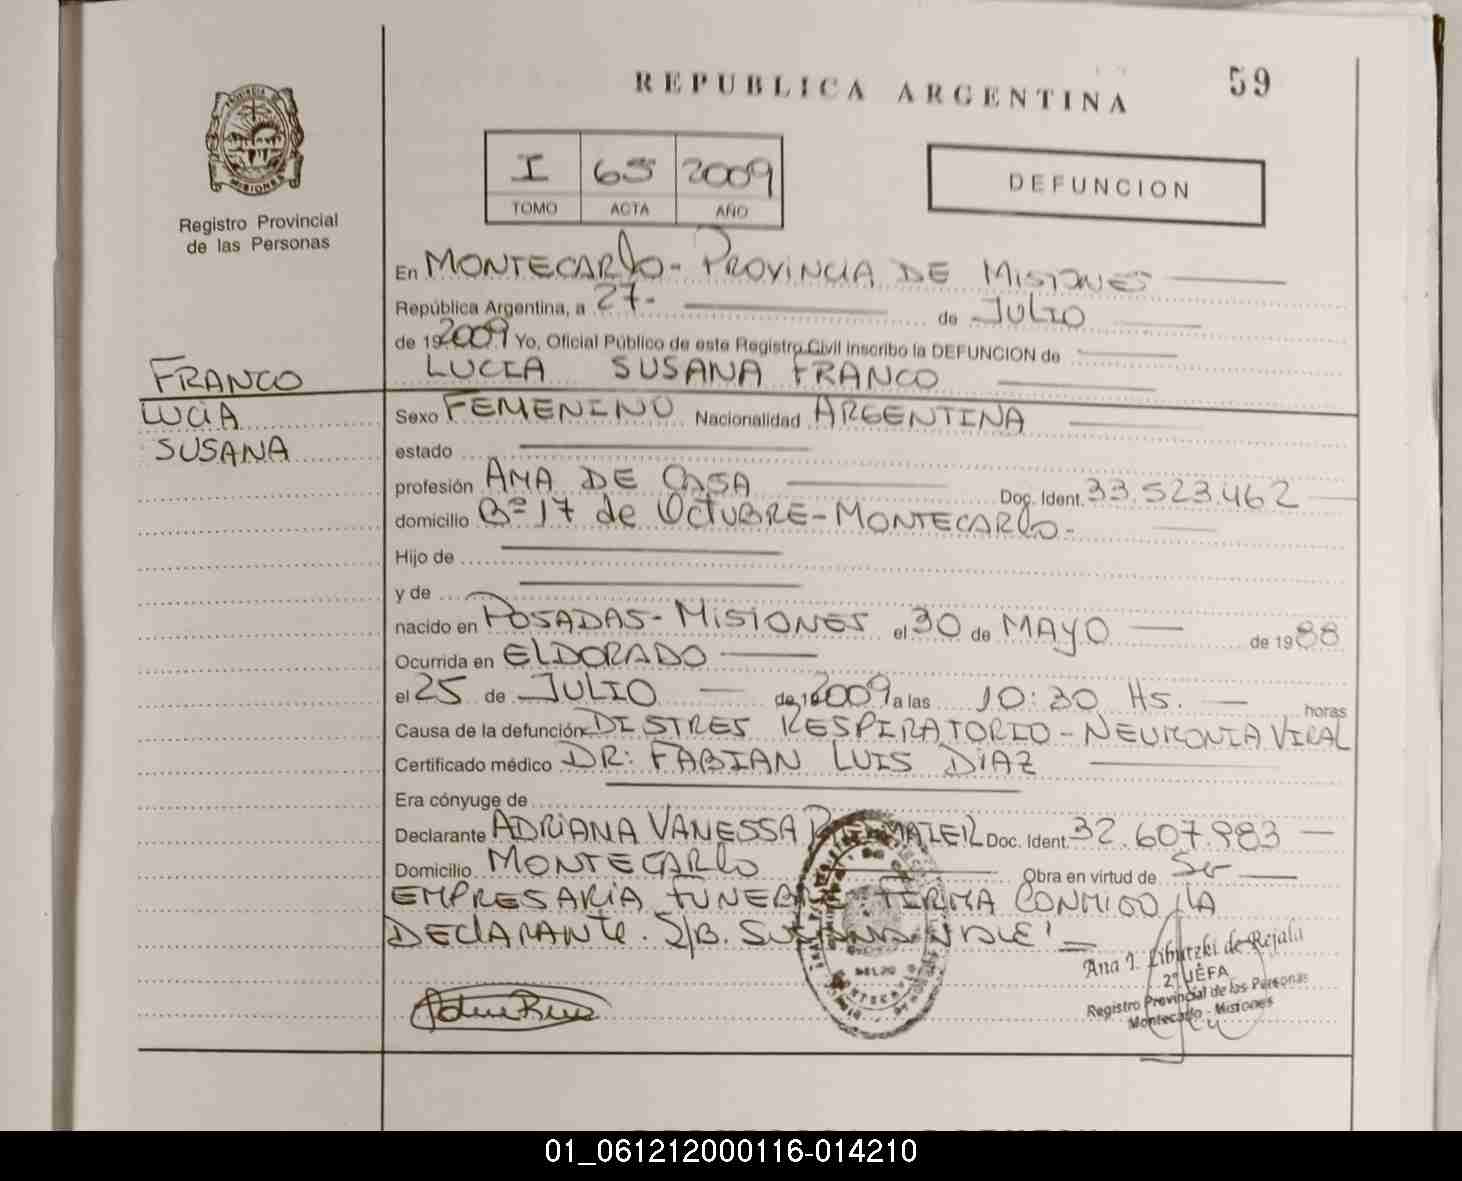 REPUBLICA ARGENTINA
59
PROVINCIA
MISIONES
Registro Provincial
de las Personas
I 65 2009
TOMO ACTA AÑO
DEFUNCION
En MONTECARLO - PROVINCIA DE MISIONES
República Argentina, a 27- de JULIO
de 192009 Yo, Oficial Público de este Registro Civil inscribo la DEFUNCION de
LUCIA SUSANA FRANCO
FRANCO
LUCIA
SUSANA
Sexo FEMENINO Nacionalidad ARGENTINA
estado
profesión AMA DE CASA Doc. Ident. 33.523.462
domicilio Bº 17 de OCTUBRE - MONTECARLO -
Hijo de
y de
nacido en POSADAS - MISIONES el 30 de MAYO de 1988
Ocurrida en ELDORADO
el 25 de JULIO de 2009 a las 10:30 HS. horas
Causa de la defunción DISTRES RESPIRATORIO - NEUMONIA VIRAL
Certificado médico DR: FABIAN LUIS DIAZ
Era cónyuge de
Declarante ADRIANA VANESSA Doc. Ident. 32.607.983
Domicilio MONTECARLO Obra en virtud de Ser
EMPRESARIA FUNEBRE FIRMA CONMIGO LA
DECLARANTE. S/B. VALE
Ana I. de Rejala
2º JEFA
Registro Provincial de las Personas
Montecarlo - Misiones
01_061212000116-014210